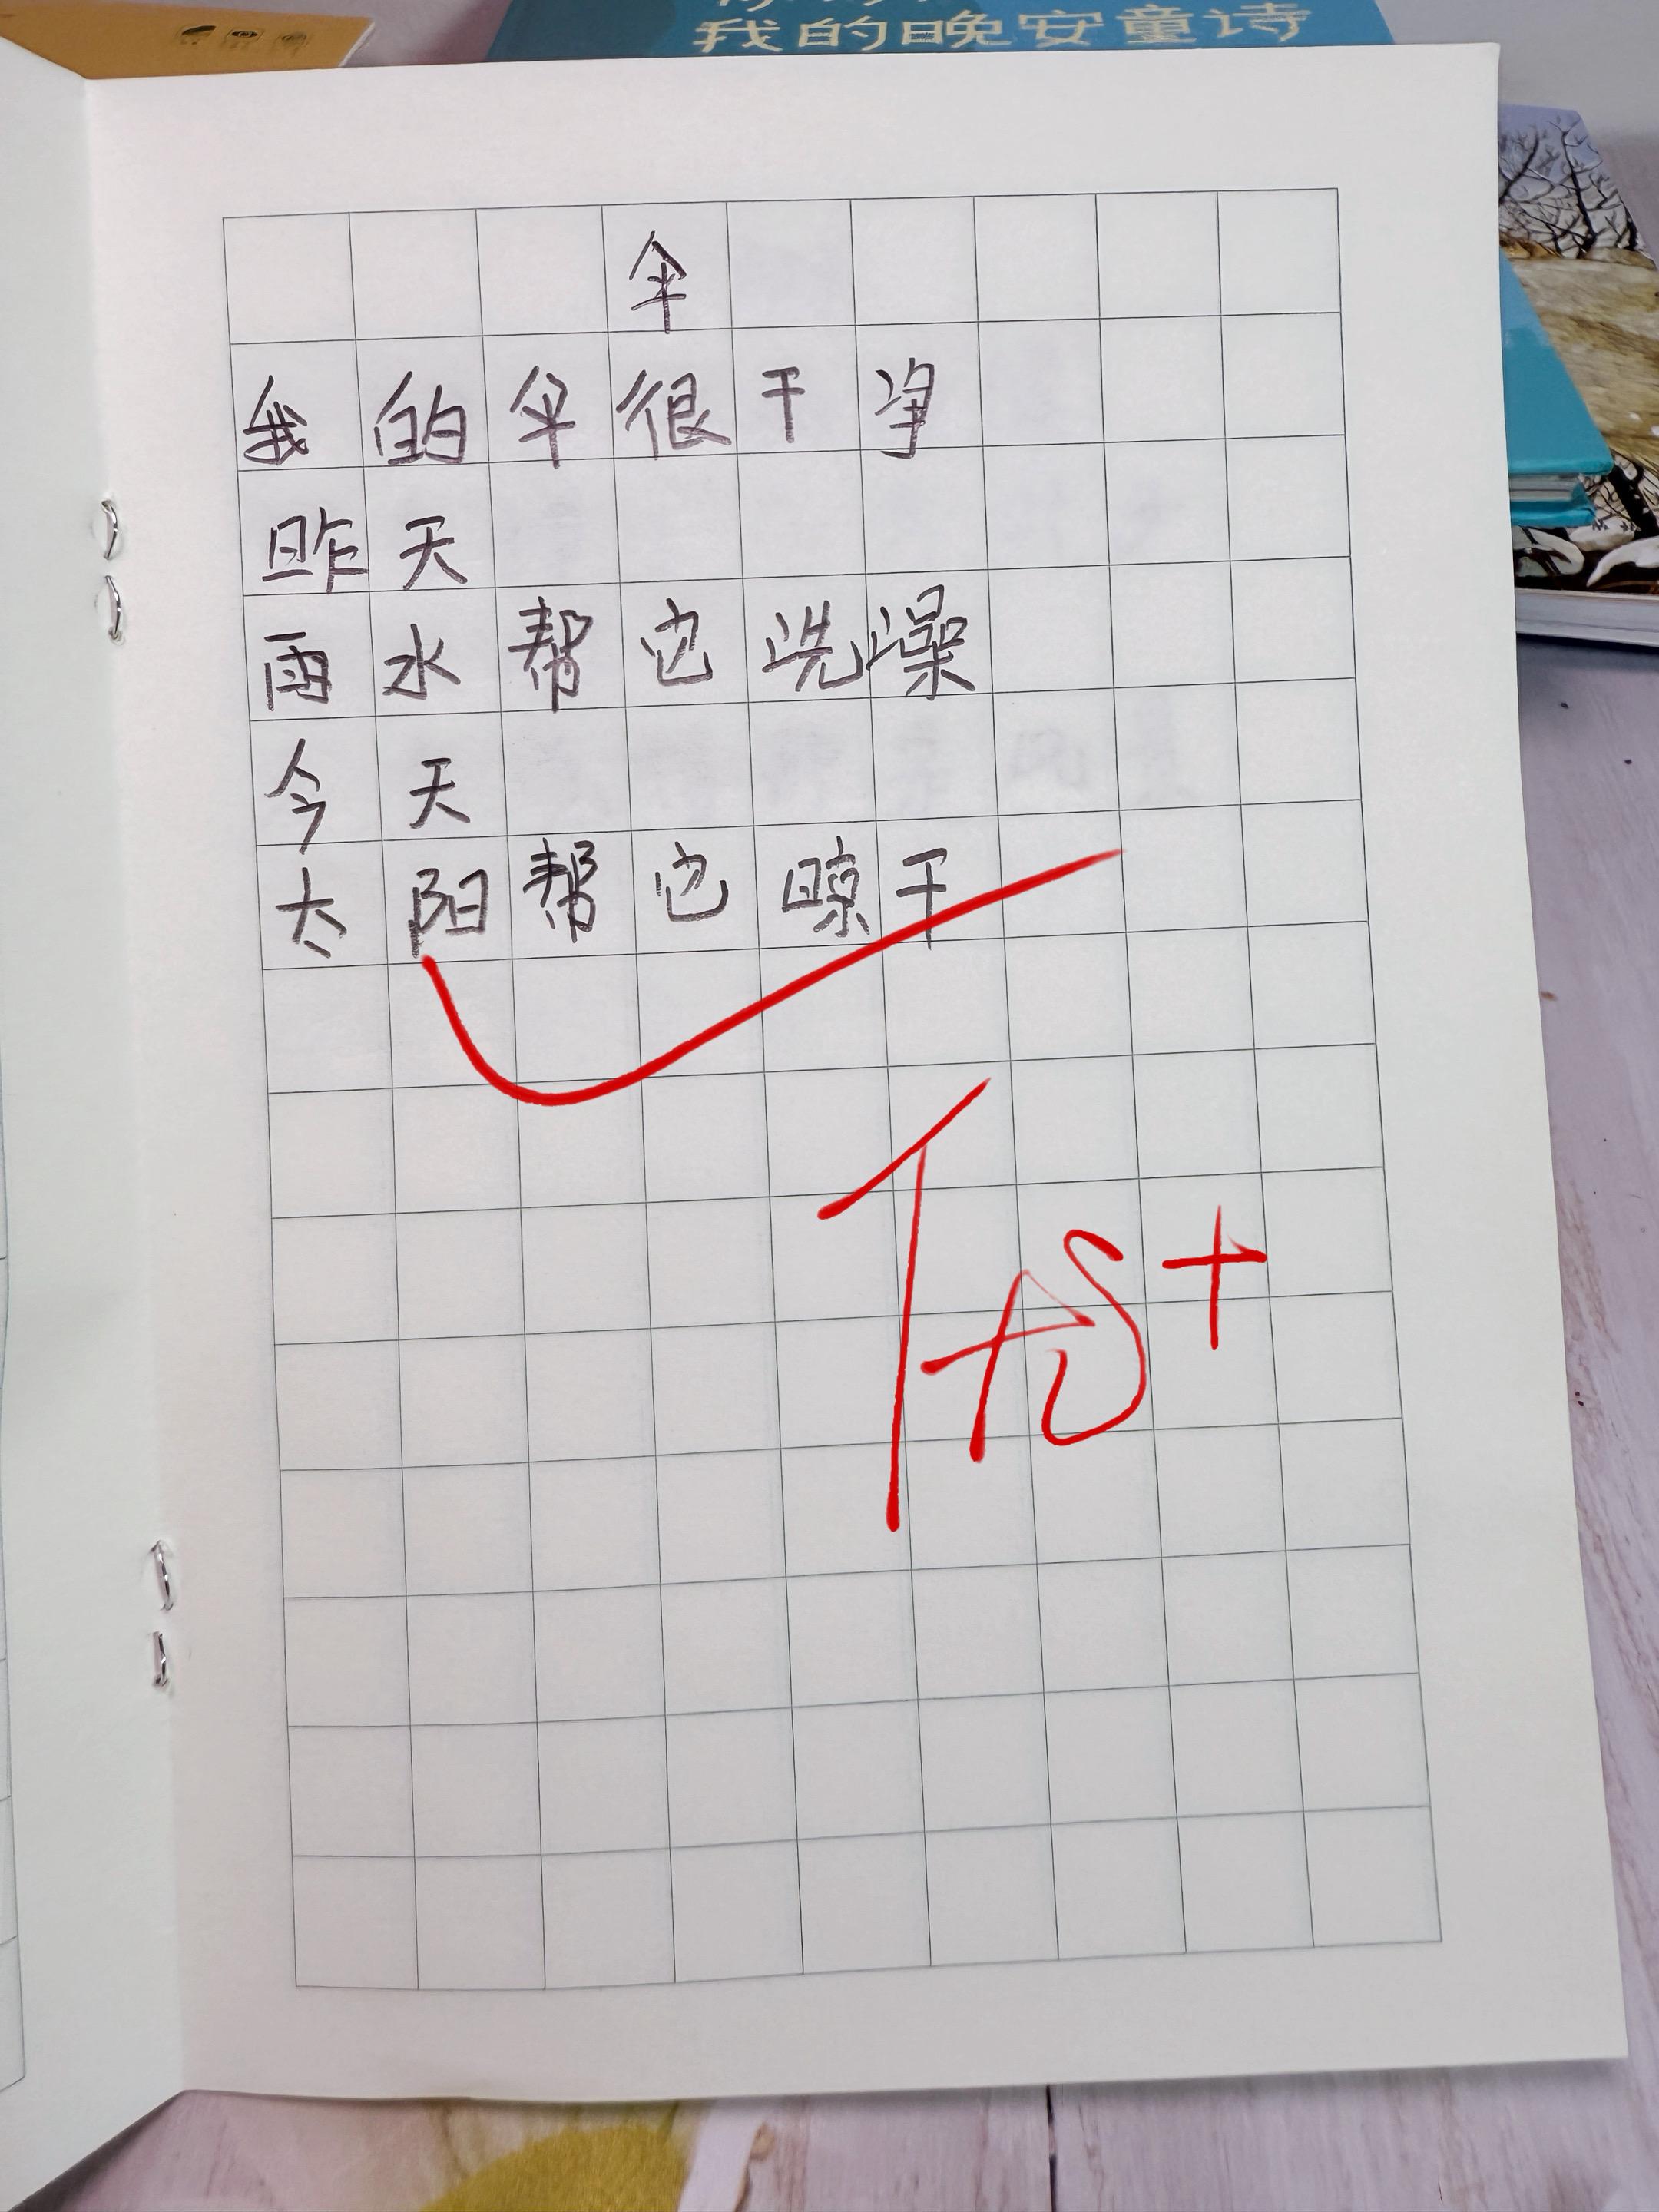 我的晚安童诗
伞
我的伞很干净
昨天
雨水帮它洗澡
今天
太阳帮它晾干